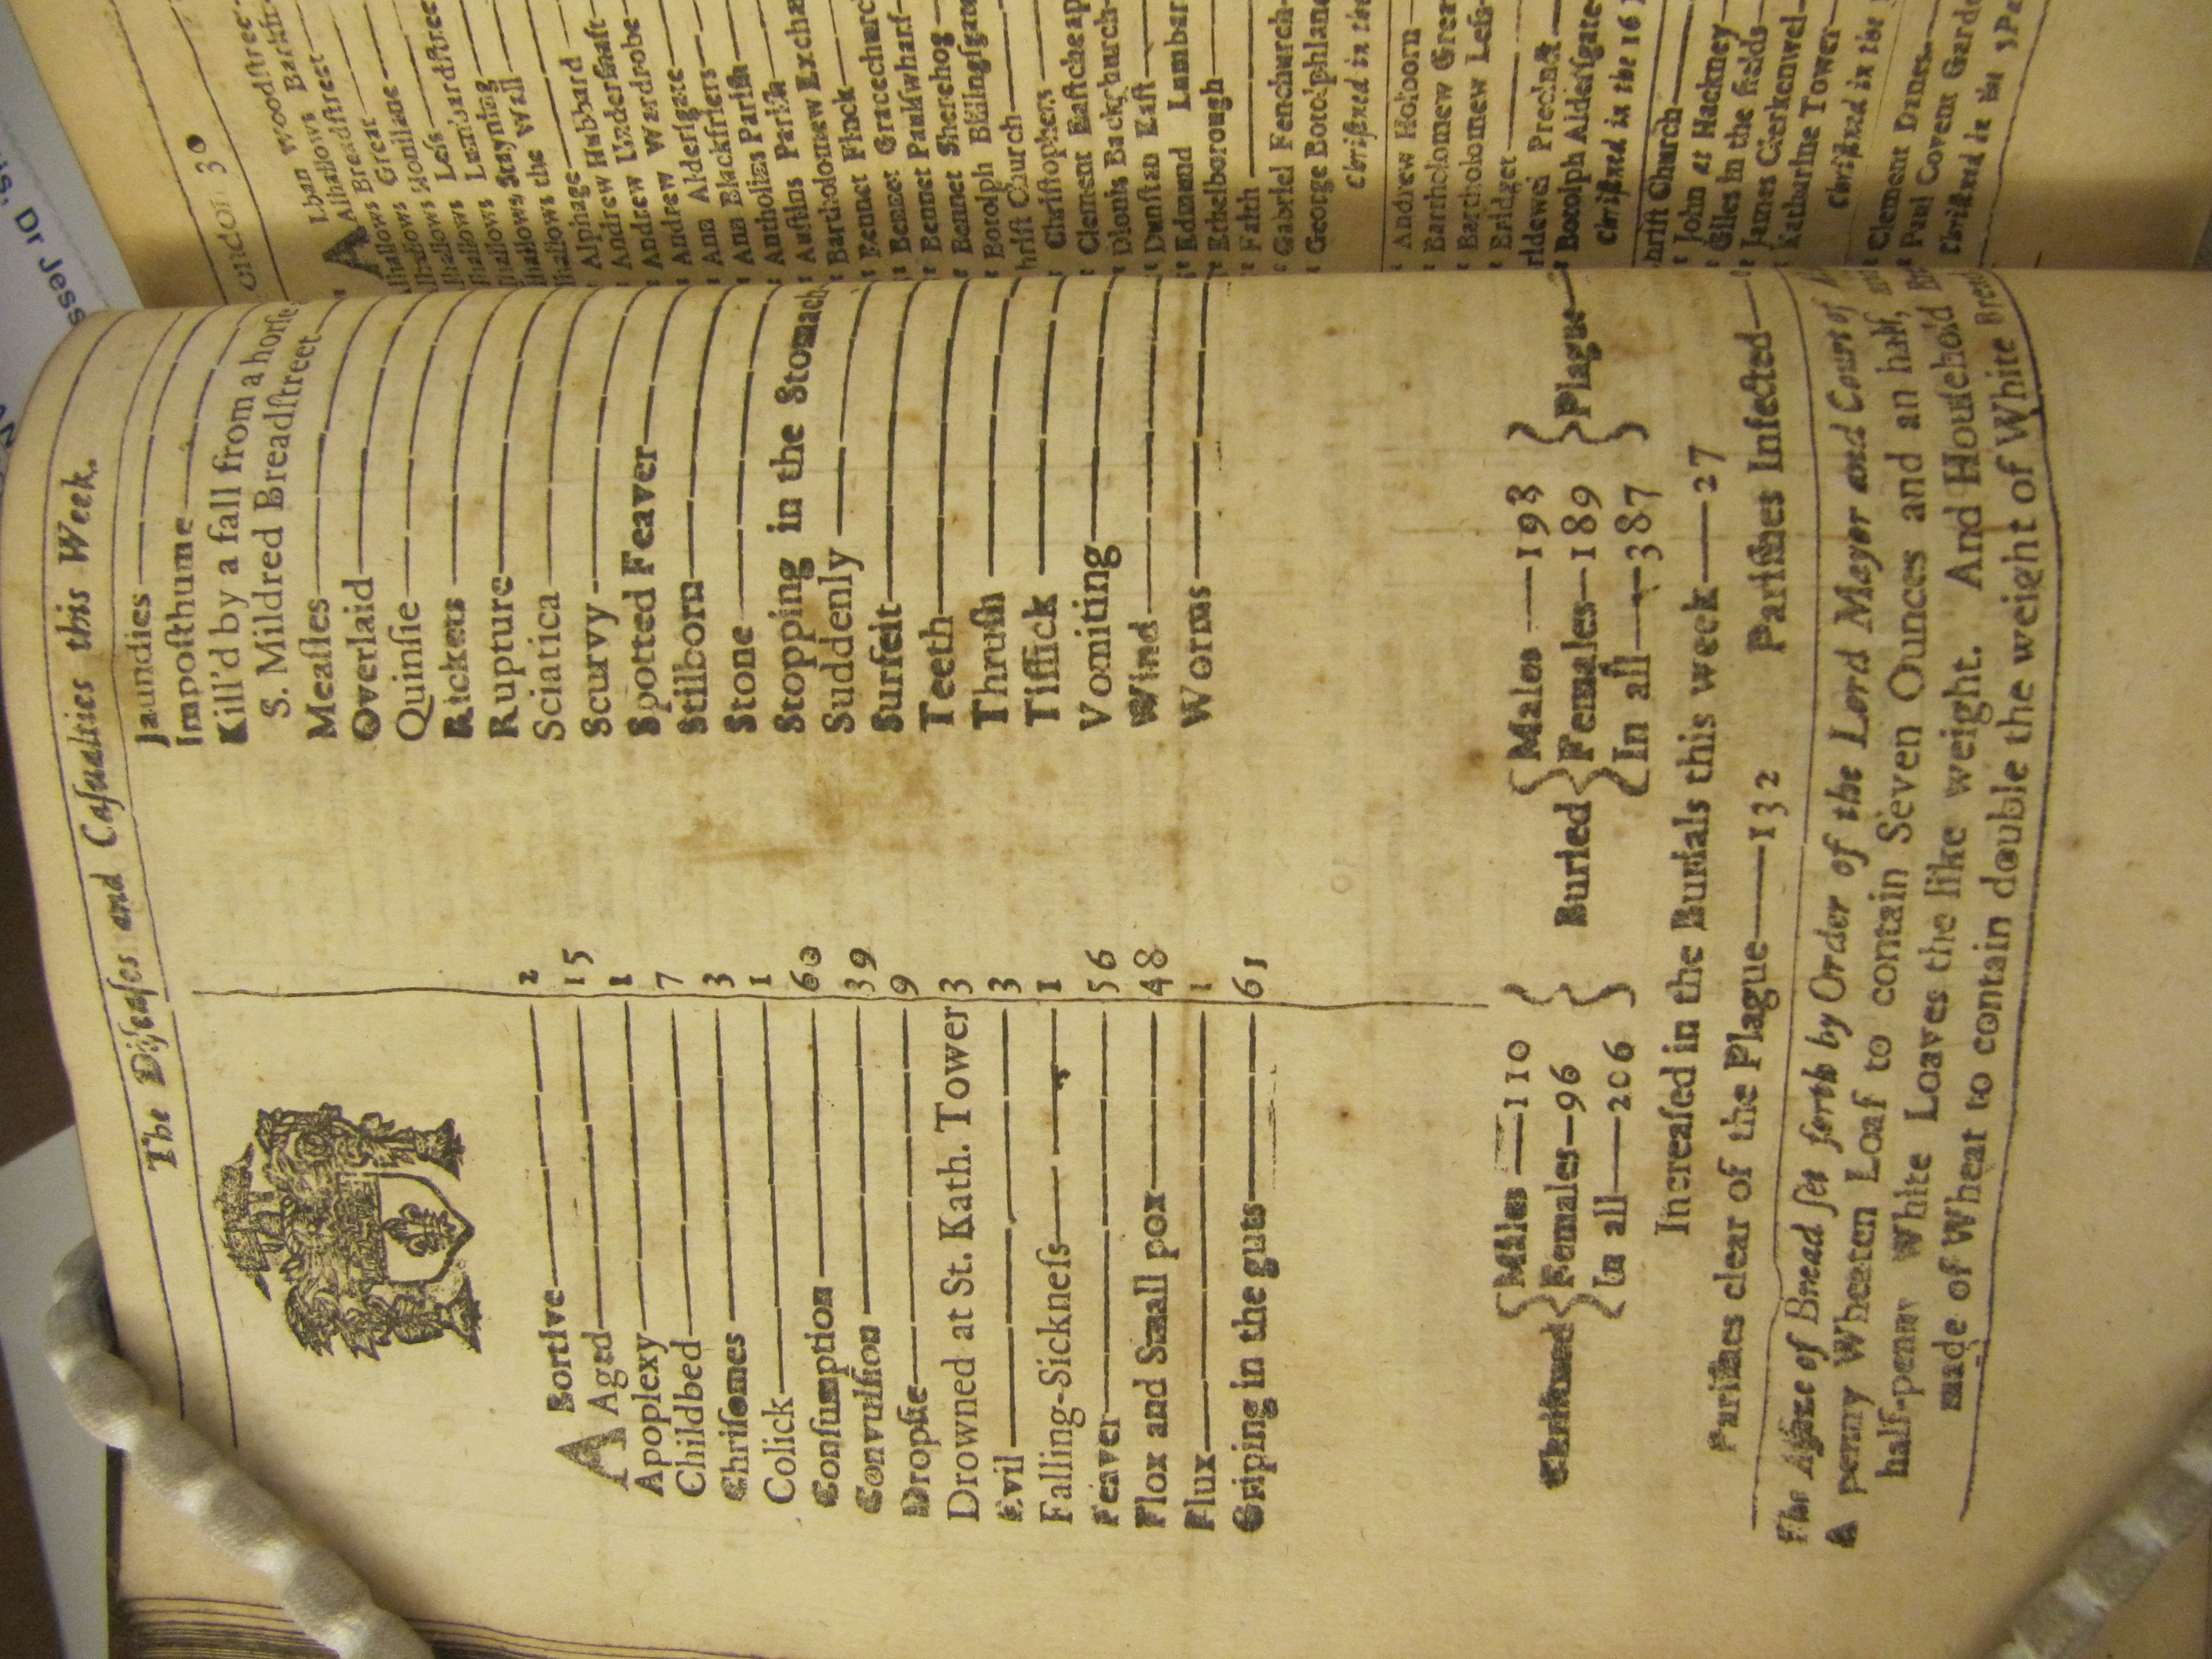 The Diſeaſes and Caſualties this Week.
ABortive 2
Aged 15
Apoplexy 1
Childbed 7
Chriſomes 3
Colick 1
Conſumption 60
Convulſion 39
Dropſie 9
Drowned at St. Kath. Tower 3
Evil 3
Falling-Sickneſs 1
Feaver 56
Flox and Small pox 48
Flux 1
Griping in the guts 61
Jaundies
Impoſthume
Kill'd by a fall from a horſe
S. Mildred Breadſtreet
Meaſles
Overlaid
Quinſie
Rickets
Rupture
Sciatica
Scurvy
Spotted Feaver
Stilborn
Stone
Stopping in the Stomach
Suddenly
Surfeit
Teeth
Thruſh
Tiſſick
Vomiting
Wind
Worms
Chriſtned { Males 110 Females 96 In all 206 } Buried { Males 198 Females 189 In all 387 } Plague
Increaſed in the Burials this week 27
Pariſhes clear of the Plague 132 Pariſhes Infected
The Aſſize of Bread ſet forth by Order of the Lord Mayor and Court of
A penny Wheaten Loaf to contain Seven Ounces and an half,
half-penny White Loaves the like weight. And Houſehold
made of Wheat to contain double the weight of White
ondon 30
lban Woodſtreet
Alhallows Barkin
Alhallows Breadſtreet
lhallows Great
lhallows Honilane
lhallows Leſs
lhallows Lumbardſtree
lhallows Stayning
lhallows the Wall
Alphage
Andrew Hubbard
Andrew Underſhaft
Andrew Wardrobe
Ann Alderſgate
Ann Blackfriers
Antholins Pariſh
Auſtins Pariſh
Bartholomew Excha
Bennet Finck
Bennet Gracechurc
Bennet Paulſwharf
Bennet Sherehog
Botolph Billingſgate
hriſt Church
Chriſtophers
Clement Eaſtcheap
Dionis Backchurch
Dunſtan Eaſt
Edmund Lumbar
Ethelborough
Faith
Gabriel Fenchurch
George Botolphlane
Chriſtned in the
Andrew Holborn
Bartholomew Grea
Bartholomew Leſs
Bridget
ridewel Precinct
Botolph Alderſgate
Chriſtned in the 16
hriſt Church
John at Hackney
Giles in the fields
James Clerkenwel
Katharine Tower
Chriſtned in the
Clement Danes
Paul Covent Garde
Chriſtned in the 5 Pa
s, Dr Jess